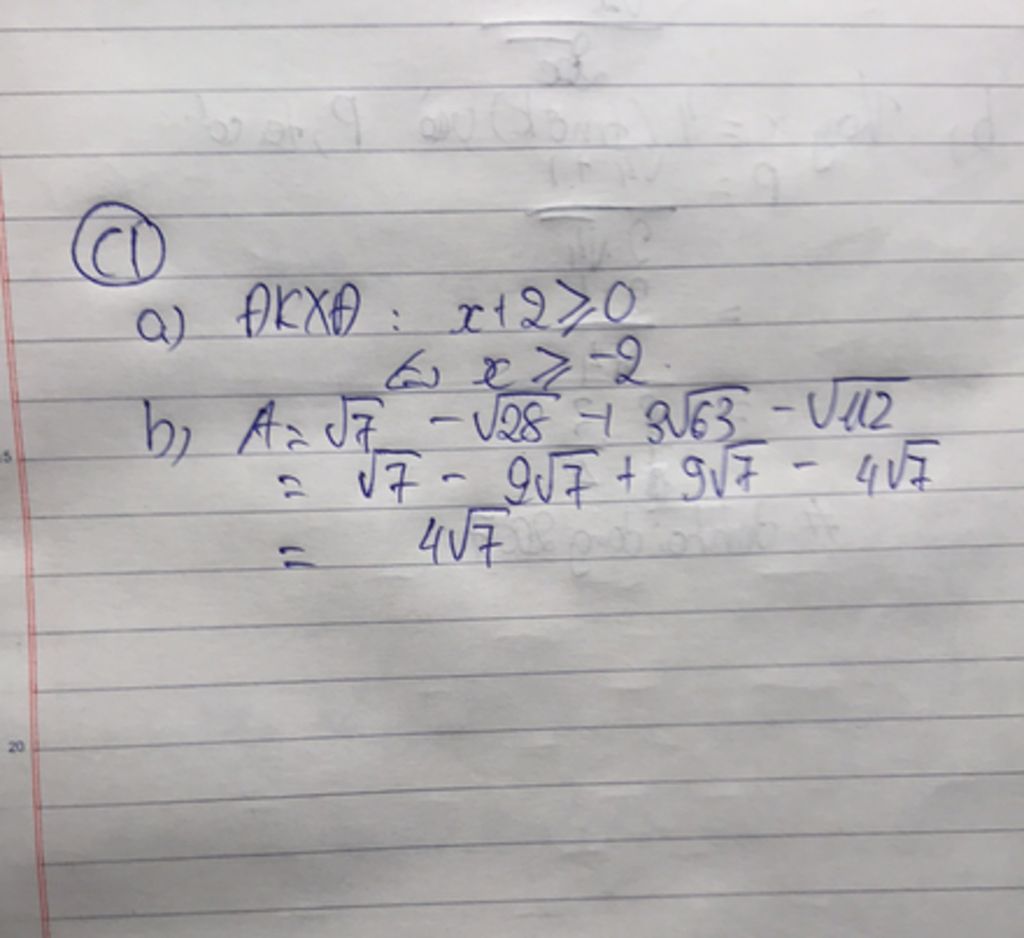 C1
a) ĐKXĐ : x+2 ≥ 0
⇔ x ≥ -2.
b, A = √7 - √28 + 3√63 - √112
= √7 - 9√7 + 9√7 - 4√7
= 4√7
5
20